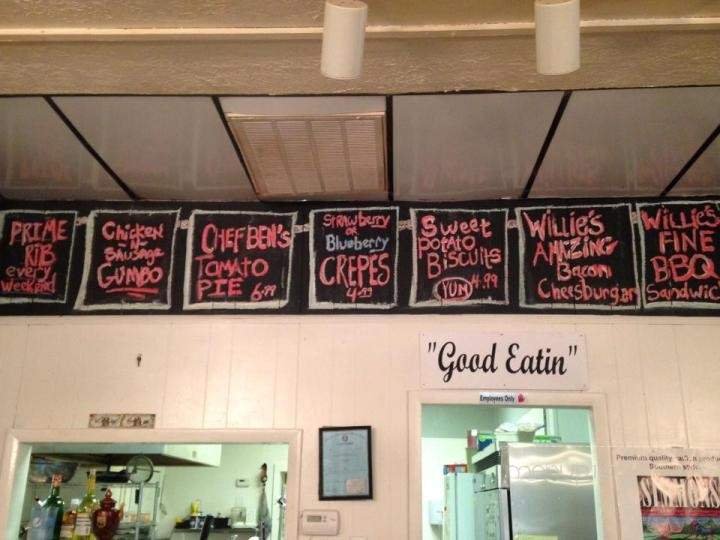 PRIME
RIB
every
Weekend
Chicken
-N-
SAusage
GUMBO
CHEF BEN'S
TOMATO
PIE 6.99
STRAWberry
OR
Blueberry
CREPES
4.99
Sweet
POTATO
BISCUITS
YUM 4.99
WILLIE'S
AMAZING
Bacon
Cheesburger
WILLIE'S
FINE
BBQ
Sandwic
"Good Eatin"
Employees Only
Premium quality
Southern
SIMMONS